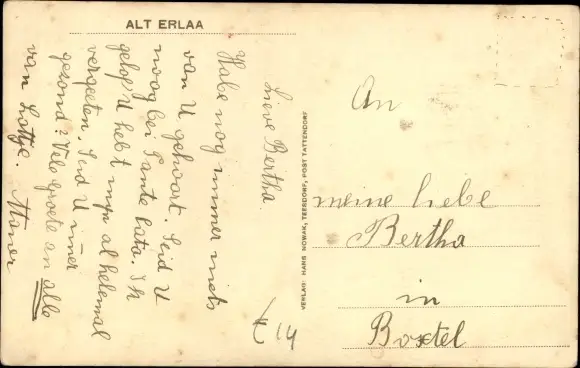 ALT ERLAA
Lieve Bertha.
Habe nog immer niets
van U gehoort. Seid U
noog bei Tante Cato. Ik
gelof U hebt myn al helemal
vergeeten. Seid U imer
gezond? Vele groete an alle
van Lottje.
VERLAG: HANS NOWAK, TEESDORF, POST TATTENDORF
An
meine liebe
Bertha
in
Boxtel
14